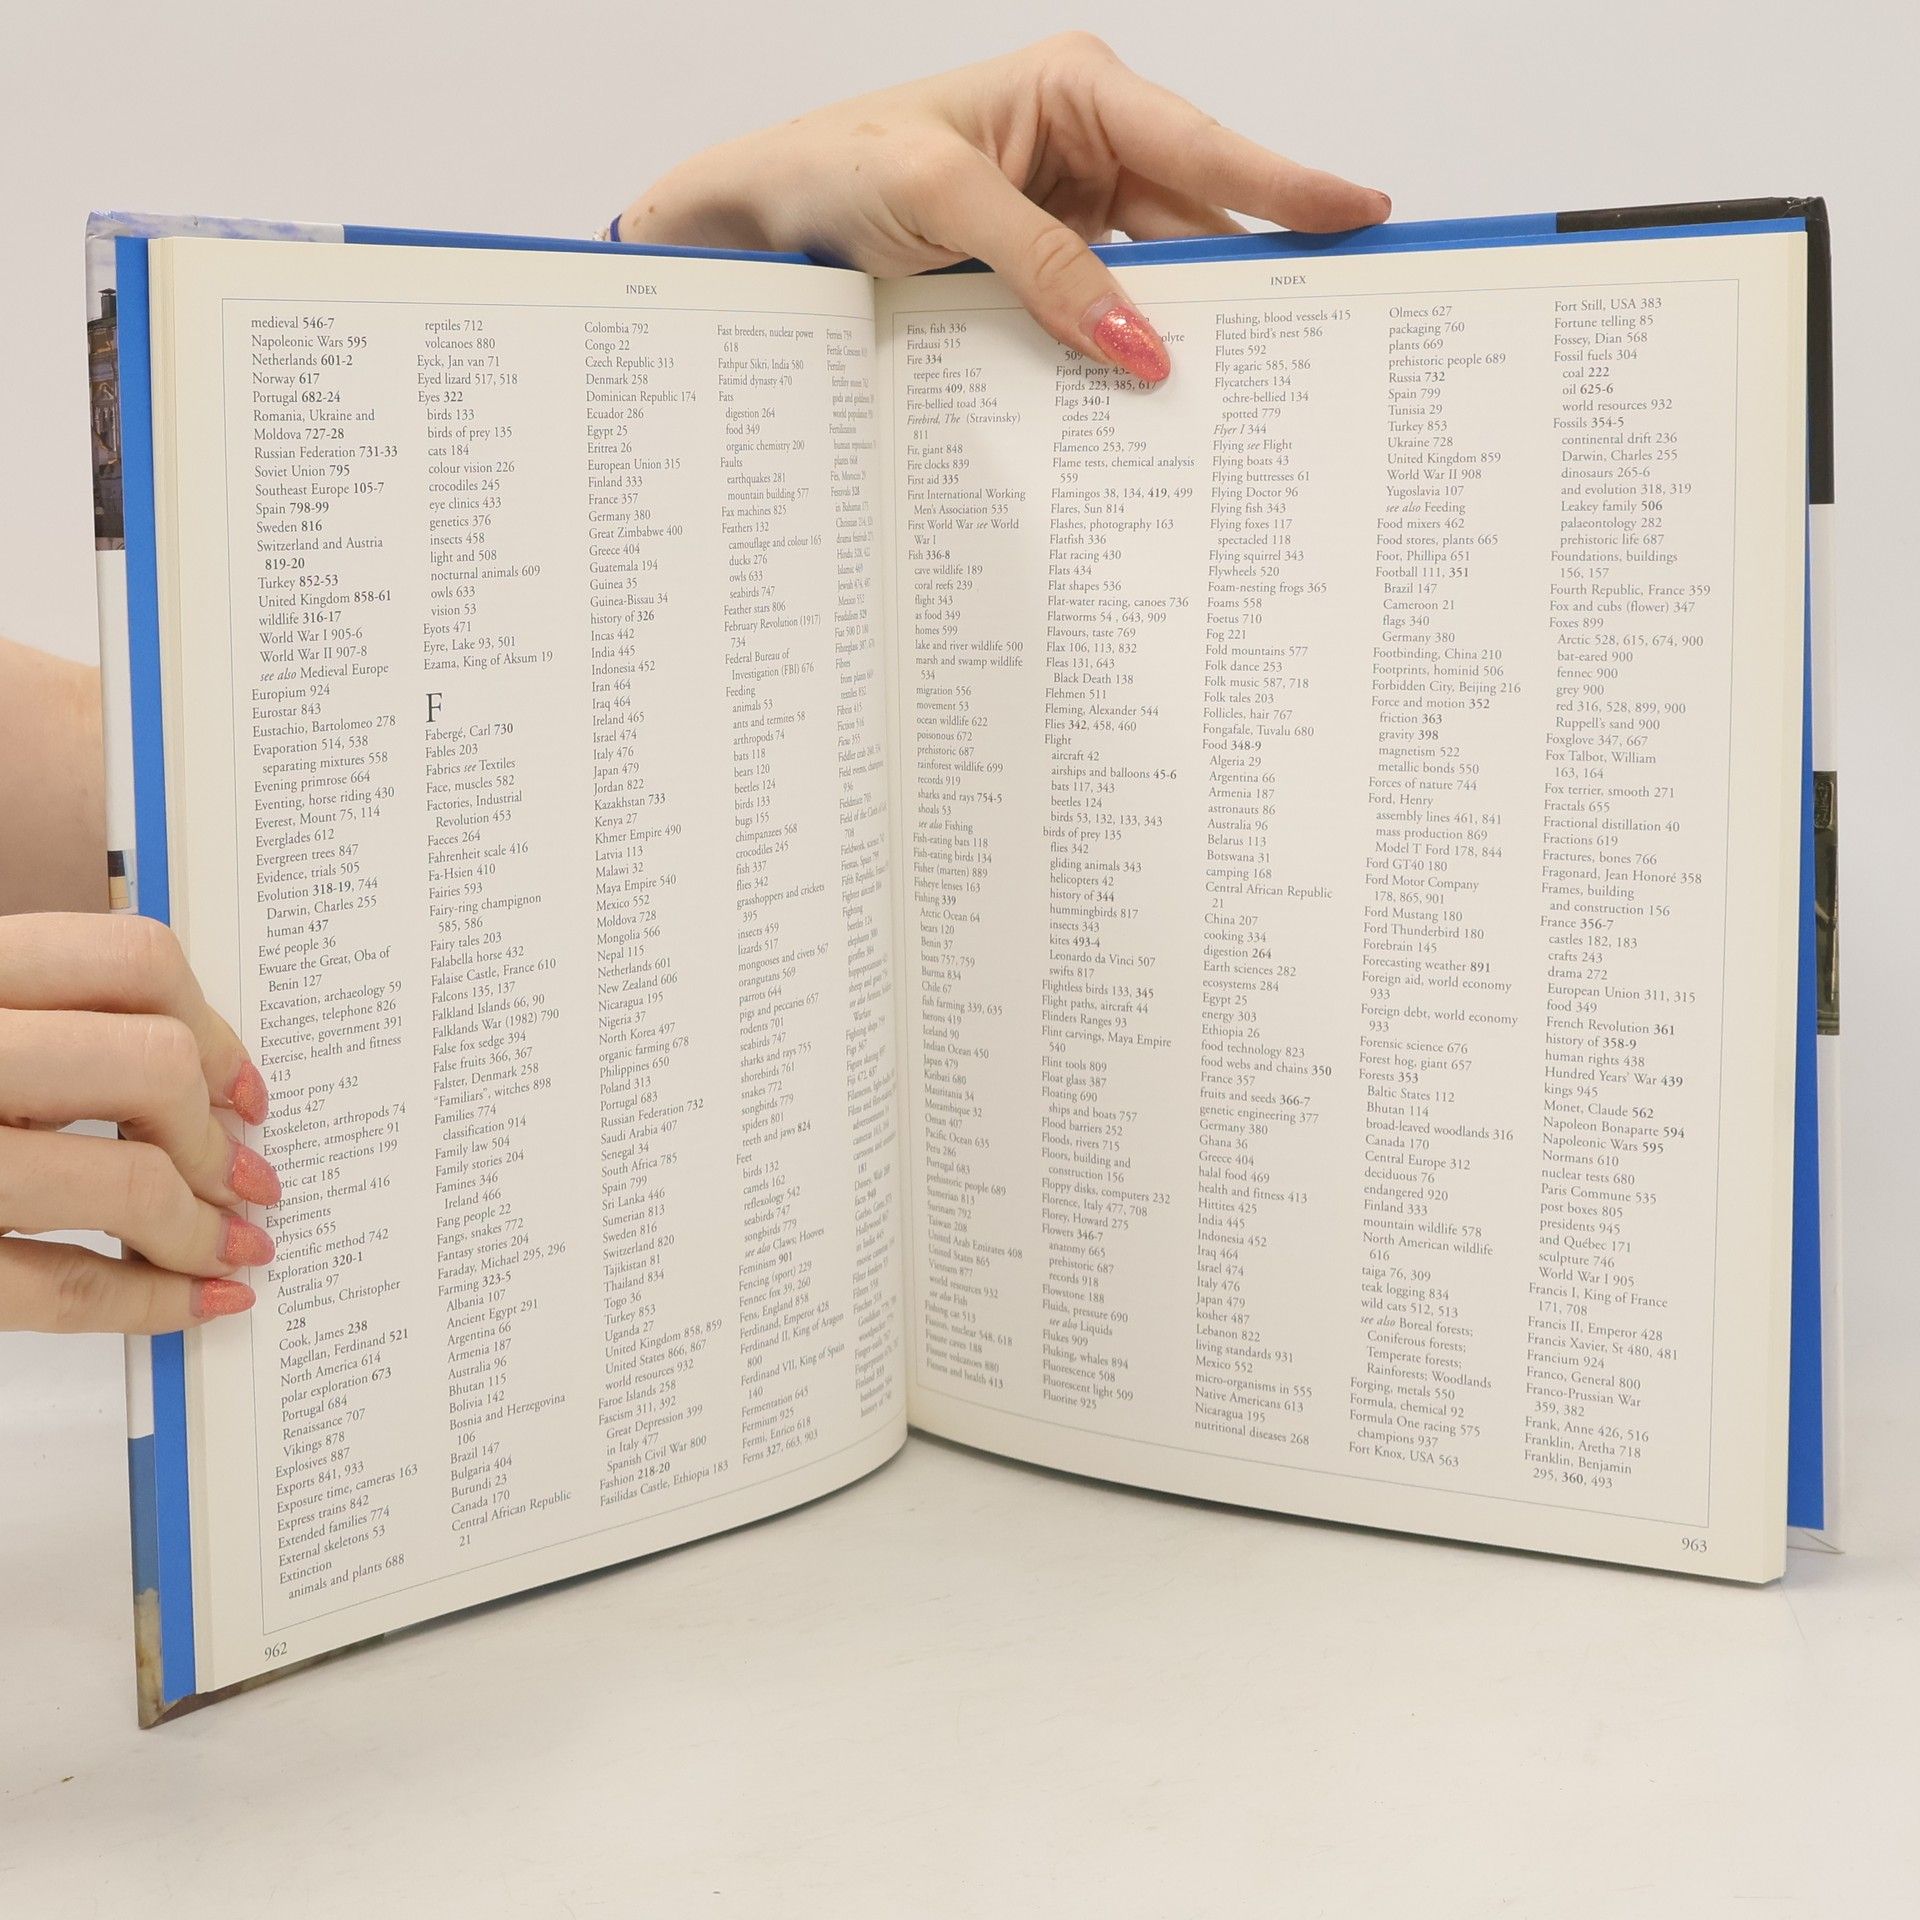 INDEX
medieval 546-7
Napoleonic Wars 595
Netherlands 601-2
Norway 617
Portugal 682-24
Romania, Ukraine and
Moldova 727-28
Russian Federation 731-33
Soviet Union 795
Southeast Europe 105-7
Spain 798-99
Sweden 816
Switzerland and Austria
819-20
Turkey 852-53
United Kingdom 858-61
wildlife 316-17
World War I 905-6
World War II 907-8
see also Medieval Europe
Europium 924
Eurostar 843
Eustachio, Bartolomeo 278
Evaporation 514, 538
separating mixtures 558
Evening primrose 664
Eventing, horse riding 430
Everest, Mount 75, 114
Everglades 612
Evergreen trees 847
Evidence, trials 505
Evolution 318-19, 744
Darwin, Charles 255
human 437
Ewé people 36
Ewuare the Great, Oba of
Benin 127
Excavation, archaeology 59
Exchanges, telephone 826
Executive, government 391
Exercise, health and fitness
413
xmoor pony 432
xodus 427
Exoskeleton, arthropods 74
Exosphere, atmosphere 91
xothermic reactions 199
otic cat 185
xpansion, thermal 416
Experiments
physics 655
scientific method 742
Exploration 320-1
Australia 97
Columbus, Christopher
228
Cook, James 238
Magellan, Ferdinand 521
North America 614
polar exploration 673
Portugal 684
Renaissance 707
Vikings 878
Explosives 887
Exports 841, 933
Exposure time, cameras 163
Express trains 842
Extended families 774
External skeletons 53
Extinction
animals and plants 688
reptiles 712
volcanoes 880
Eyck, Jan van 71
Eyed lizard 517, 518
Eyes 322
birds 133
birds of prey 135
cats 184
colour vision 226
crocodiles 245
eye clinics 433
genetics 376
insects 458
light and 508
nocturnal animals 609
owls 633
vision 53
Eyots 471
Eyre, Lake 93, 501
Ezama, King of Aksum 19
F
Fabergé, Carl 730
Fables 203
Fabrics see Textiles
Face, muscles 582
Factories, Industrial
Revolution 453
Faeces 264
Fahrenheit scale 416
Fa-Hsien 410
Fairies 593
Fairy-ring champignon
585, 586
Fairy tales 203
Falabella horse 432
Falaise Castle, France 610
Falcons 135, 137
Falkland Islands 66, 90
Falklands War (1982) 790
False fox sedge 394
False fruits 366, 367
Falster, Denmark 258
"Familiars", witches 898
Families 774
classification 914
Family law 504
Family stories 204
Famines 346
Ireland 466
Fang people 22
Fangs, snakes 772
Fantasy stories 204
Faraday, Michael 295, 296
Farming 323-5
Albania 107
Ancient Egypt 291
Argentina 66
Armenia 187
Australia 96
Bhutan 115
Bolivia 142
Bosnia and Herzegovina
106
Brazil 147
Bulgaria 404
Burundi 23
Canada 170
Central African Republic
21
Colombia 792
Congo 22
Czech Republic 313
Denmark 258
Dominican Republic 174
Ecuador 286
Egypt 25
Eritrea 26
European Union 315
Finland 333
France 357
Germany 380
Great Zimbabwe 400
Greece 404
Guatemala 194
Guinea 35
Guinea-Bissau 34
history of 326
Incas 442
India 445
Indonesia 452
Iran 464
Iraq 464
Ireland 465
Israel 474
Italy 476
Japan 479
Jordan 822
Kazakhstan 733
Kenya 27
Khmer Empire 490
Latvia 113
Malawi 32
Maya Empire 540
Mexico 552
Moldova 728
Mongolia 566
Nepal 115
Netherlands 601
New Zealand 606
Nicaragua 195
Nigeria 37
North Korea 497
organic farming 678
Philippines 650
Poland 313
Portugal 683
Russian Federation 732
Saudi Arabia 407
Senegal 34
South Africa 785
Spain 799
Sri Lanka 446
Sumerian 813
Sweden 816
Switzerland 820
Tajikistan 81
Thailand 834
Togo 36
Turkey 853
Uganda 27
United Kingdom 858, 859
United States 866, 867
world resources 932
Faroe Islands 258
Fascism 311, 392
Great Depression 399
in Italy 477
Spanish Civil War 800
Fashion 218-20
Fasilidas Castle, Ethiopia 183
Fast breeders, nuclear power
618
Fathpur Sikri, India 580
Fatimid dynasty 470
Fats
digestion 264
food 349
organic chemistry 200
Faults
earthquakes 281
mountain building 577
Fax machines 825
Feathers 132
camouflage and colour 165
ducks 276
owls 633
seabirds 747
Feather stars 806
February Revolution (1917)
734
Federal Bureau of
Investigation (FBI) 676
Feeding
animals 53
ants and termites 58
arthropods 74
bats 118
bears 120
beetles 124
birds 133
bugs 155
chimpanzees 568
crocodiles 245
fish 337
flies 342
grasshoppers and crickets
395
insects 459
lizards 517
mongooses and civets 567
orangutans 569
parrots 644
pigs and peccaries 657
rodents 701
seabirds 747
sharks and rays 755
shorebirds 761
snakes 772
songbirds 779
spiders 801
teeth and jaws 824
Feet
birds 132
camels 162
reflexology 542
seabirds 747
songbirds 779
see also Claws; Hooves
Feminism 901
Fencing (sport) 229
Fennec fox 39, 260
Fens, England 858
Ferdinand, Emperor 428
Ferdinand II, King of Aragon
800
Ferdinand VII, King of Spain
140
Fermentation 645
Fermium 925
Fermi, Enrico 618
Ferns 327, 663, 903
Ferrets 759
Fertile Crescent
Fertility
Fertilization
Festivals 328
Feudalism 329
Fibres
Fiction 516
Fighting
962
INDEX
Fins, fish 336
Firdausi 515
Fire 334
teepee fires 167
Firearms 409, 888
Fire-bellied toad 364
Firebird, The (Stravinsky)
811
Fir, giant 848
Fire clocks 839
First aid 335
First International Working
Men's Association 535
First World War see World
War I
Fish 336-8
cave wildlife 189
coral reefs 239
flight 343
as food 349
homes 599
lake and river wildlife 500
marsh and swamp wildlife
534
migration 556
movement 53
ocean wildlife 622
poisonous 672
prehistoric 687
rainforest wildlife 699
records 919
sharks and rays 754-5
shoals 53
see also Fishing
Fish-eating bats 118
Fish-eating birds 134
Fisher (marten) 889
Fisheye lenses 163
Fishing 339
Arctic Ocean 64
bears 120
Benin 37
boats 757, 759
Burma 834
Chile 67
fish farming 339, 635
herons 419
Iceland 90
Indian Ocean 450
Japan 479
Kiribati 680
Mauritania 34
Mozambique 32
Oman 407
Pacific Ocean 635
Peru 286
Portugal 683
prehistoric people 689
Sumerian 813
Surinam 792
Taiwan 208
United Arab Emirates 408
United States 865
Vietnam 877
world resources 932
see also Fish
Fishing cat 513
Fission, nuclear 548, 618
Fissure caves 188
Fissure volcanoes 880
Fitness and health 413
olyte
509
Fjord pony 432
Fjords 223, 385, 617
Flags 340-1
codes 224
pirates 659
Flamenco 253, 799
Flame tests, chemical analysis
559
Flamingos 38, 134, 419, 499
Flares, Sun 814
Flashes, photography 163
Flatfish 336
Flat racing 430
Flats 434
Flat shapes 536
Flat-water racing, canoes 736
Flatworms 54 , 643, 909
Flavours, taste 769
Flax 106, 113, 832
Fleas 131, 643
Black Death 138
Flehmen 511
Fleming, Alexander 544
Flies 342, 458, 460
Flight
aircraft 42
airships and balloons 45-6
bats 117, 343
beetles 124
birds 53, 132, 133, 343
birds of prey 135
flies 342
gliding animals 343
helicopters 42
history of 344
hummingbirds 817
insects 343
kites 493-4
Leonardo da Vinci 507
swifts 817
Flightless birds 133, 345
Flight paths, aircraft 44
Flinders Ranges 93
Flint carvings, Maya Empire
540
Flint tools 809
Float glass 387
Floating 690
ships and boats 757
Flood barriers 252
Floods, rivers 715
Floors, building and
construction 156
Floppy disks, computers 232
Florence, Italy 477, 708
Florey, Howard 275
Flowers 346-7
anatomy 665
prehistoric 687
records 918
Flowstone 188
Fluids, pressure 690
see also Liquids
Flukes 909
Fluking, whales 894
Fluorescence 508
Fluorescent light 509
Fluorine 925
Flushing, blood vessels 415
Fluted bird's nest 586
Flutes 592
Fly agaric 585, 586
Flycatchers 134
ochre-bellied 134
spotted 779
Flyer I 344
Flying see Flight
Flying boats 43
Flying buttresses 61
Flying Doctor 96
Flying fish 343
Flying foxes 117
spectacled 118
Flying squirrel 343
Flywheels 520
Foam-nesting frogs 365
Foams 558
Foetus 710
Fog 221
Fold mountains 577
Folk dance 253
Folk music 587, 718
Folk tales 203
Follicles, hair 767
Fongafale, Tuvalu 680
Food 348-9
Algeria 29
Argentina 66
Armenia 187
astronauts 86
Australia 96
Belarus 113
Botswana 31
camping 168
Central African Republic
21
China 207
cooking 334
digestion 264
Earth sciences 282
ecosystems 284
Egypt 25
energy 303
Ethiopia 26
food technology 823
food webs and chains 350
France 357
fruits and seeds 366-7
genetic engineering 377
Germany 380
Ghana 36
Greece 404
halal food 469
health and fitness 413
Hittites 425
India 445
Indonesia 452
Iraq 464
Israel 474
Italy 476
Japan 479
kosher 487
Lebanon 822
living standards 931
Mexico 552
micro-organisms in 555
Native Americans 613
Nicaragua 195
nutritional diseases 268
Olmecs 627
packaging 760
plants 669
prehistoric people 689
Russia 732
Spain 799
Tunisia 29
Turkey 853
Ukraine 728
United Kingdom 859
World War II 908
Yugoslavia 107
see also Feeding
Food mixers 462
Food stores, plants 665
Foot, Phillipa 651
Football 111, 351
Brazil 147
Cameroon 21
flags 340
Germany 380
Footbinding, China 210
Footprints, hominid 506
Forbidden City, Beijing 216
Force and motion 352
friction 363
gravity 398
magnetism 522
metallic bonds 550
Forces of nature 744
Ford, Henry
assembly lines 461, 841
mass production 869
Model T Ford 178, 844
Ford GT40 180
Ford Motor Company
178, 865, 901
Ford Mustang 180
Ford Thunderbird 180
Forebrain 145
Forecasting weather 891
Foreign aid, world economy
933
Foreign debt, world economy
933
Forensic science 676
Forest hog, giant 657
Forests 353
Baltic States 112
Bhutan 114
broad-leaved woodlands 316
Canada 170
Central Europe 312
deciduous 76
endangered 920
Finland 333
mountain wildlife 578
North American wildlife
616
taiga 76, 309
teak logging 834
wild cats 512, 513
see also Boreal forests;
Coniferous forests;
Temperate forests;
Rainforests; Woodlands
Forging, metals 550
Formula, chemical 92
Formula One racing 575
champions 937
Fort Knox, USA 563
Fort Still, USA 383
Fortune telling 85
Fossey, Dian 568
Fossil fuels 304
coal 222
oil 625-6
world resources 932
Fossils 354-5
continental drift 236
Darwin, Charles 255
dinosaurs 265-6
and evolution 318, 319
Leakey family 506
palaeontology 282
prehistoric life 687
Foundations, buildings
156, 157
Fourth Republic, France 359
Fox and cubs (flower) 347
Foxes 899
Arctic 528, 615, 674, 900
bat-eared 900
fennec 900
grey 900
red 316, 528, 899, 900
Ruppell's sand 900
Foxglove 347, 667
Fox Talbot, William
163, 164
Fox terrier, smooth 271
Fractals 655
Fractional distillation 40
Fractions 619
Fractures, bones 766
Fragonard, Jean Honoré 358
Frames, building
and construction 156
France 356-7
castles 182, 183
crafts 243
drama 272
European Union 311, 315
food 349
French Revolution 361
history of 358-9
human rights 438
Hundred Years' War 439
kings 945
Monet, Claude 562
Napoleon Bonaparte 594
Napoleonic Wars 595
Normans 610
nuclear tests 680
Paris Commune 535
post boxes 805
presidents 945
and Québec 171
sculpture 746
World War I 905
Francis I, King of France
171, 708
Francis II, Emperor 428
Francis Xavier, St 480, 481
Francium 924
Franco, General 800
Franco-Prussian War
359, 382
Frank, Anne 426, 516
Franklin, Aretha 718
Franklin, Benjamin
295, 360, 493
963